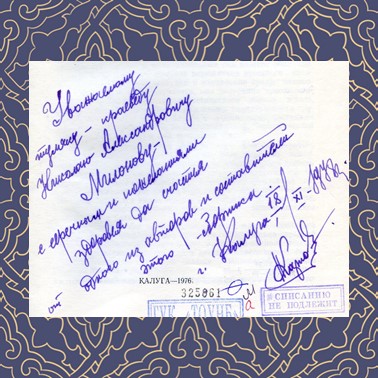 Уважаемому
туляку - краеведу
Николаю Александровичу
Милонову -
с крепкими и пожеланиями
здоровья да счастья
от одного из авторов и составителей
этого сборника
г. Калуга 18/XI-
КАЛУГА—1976.
325061
СПИСАНИЮ
НЕ ПОДЛЕЖИТ